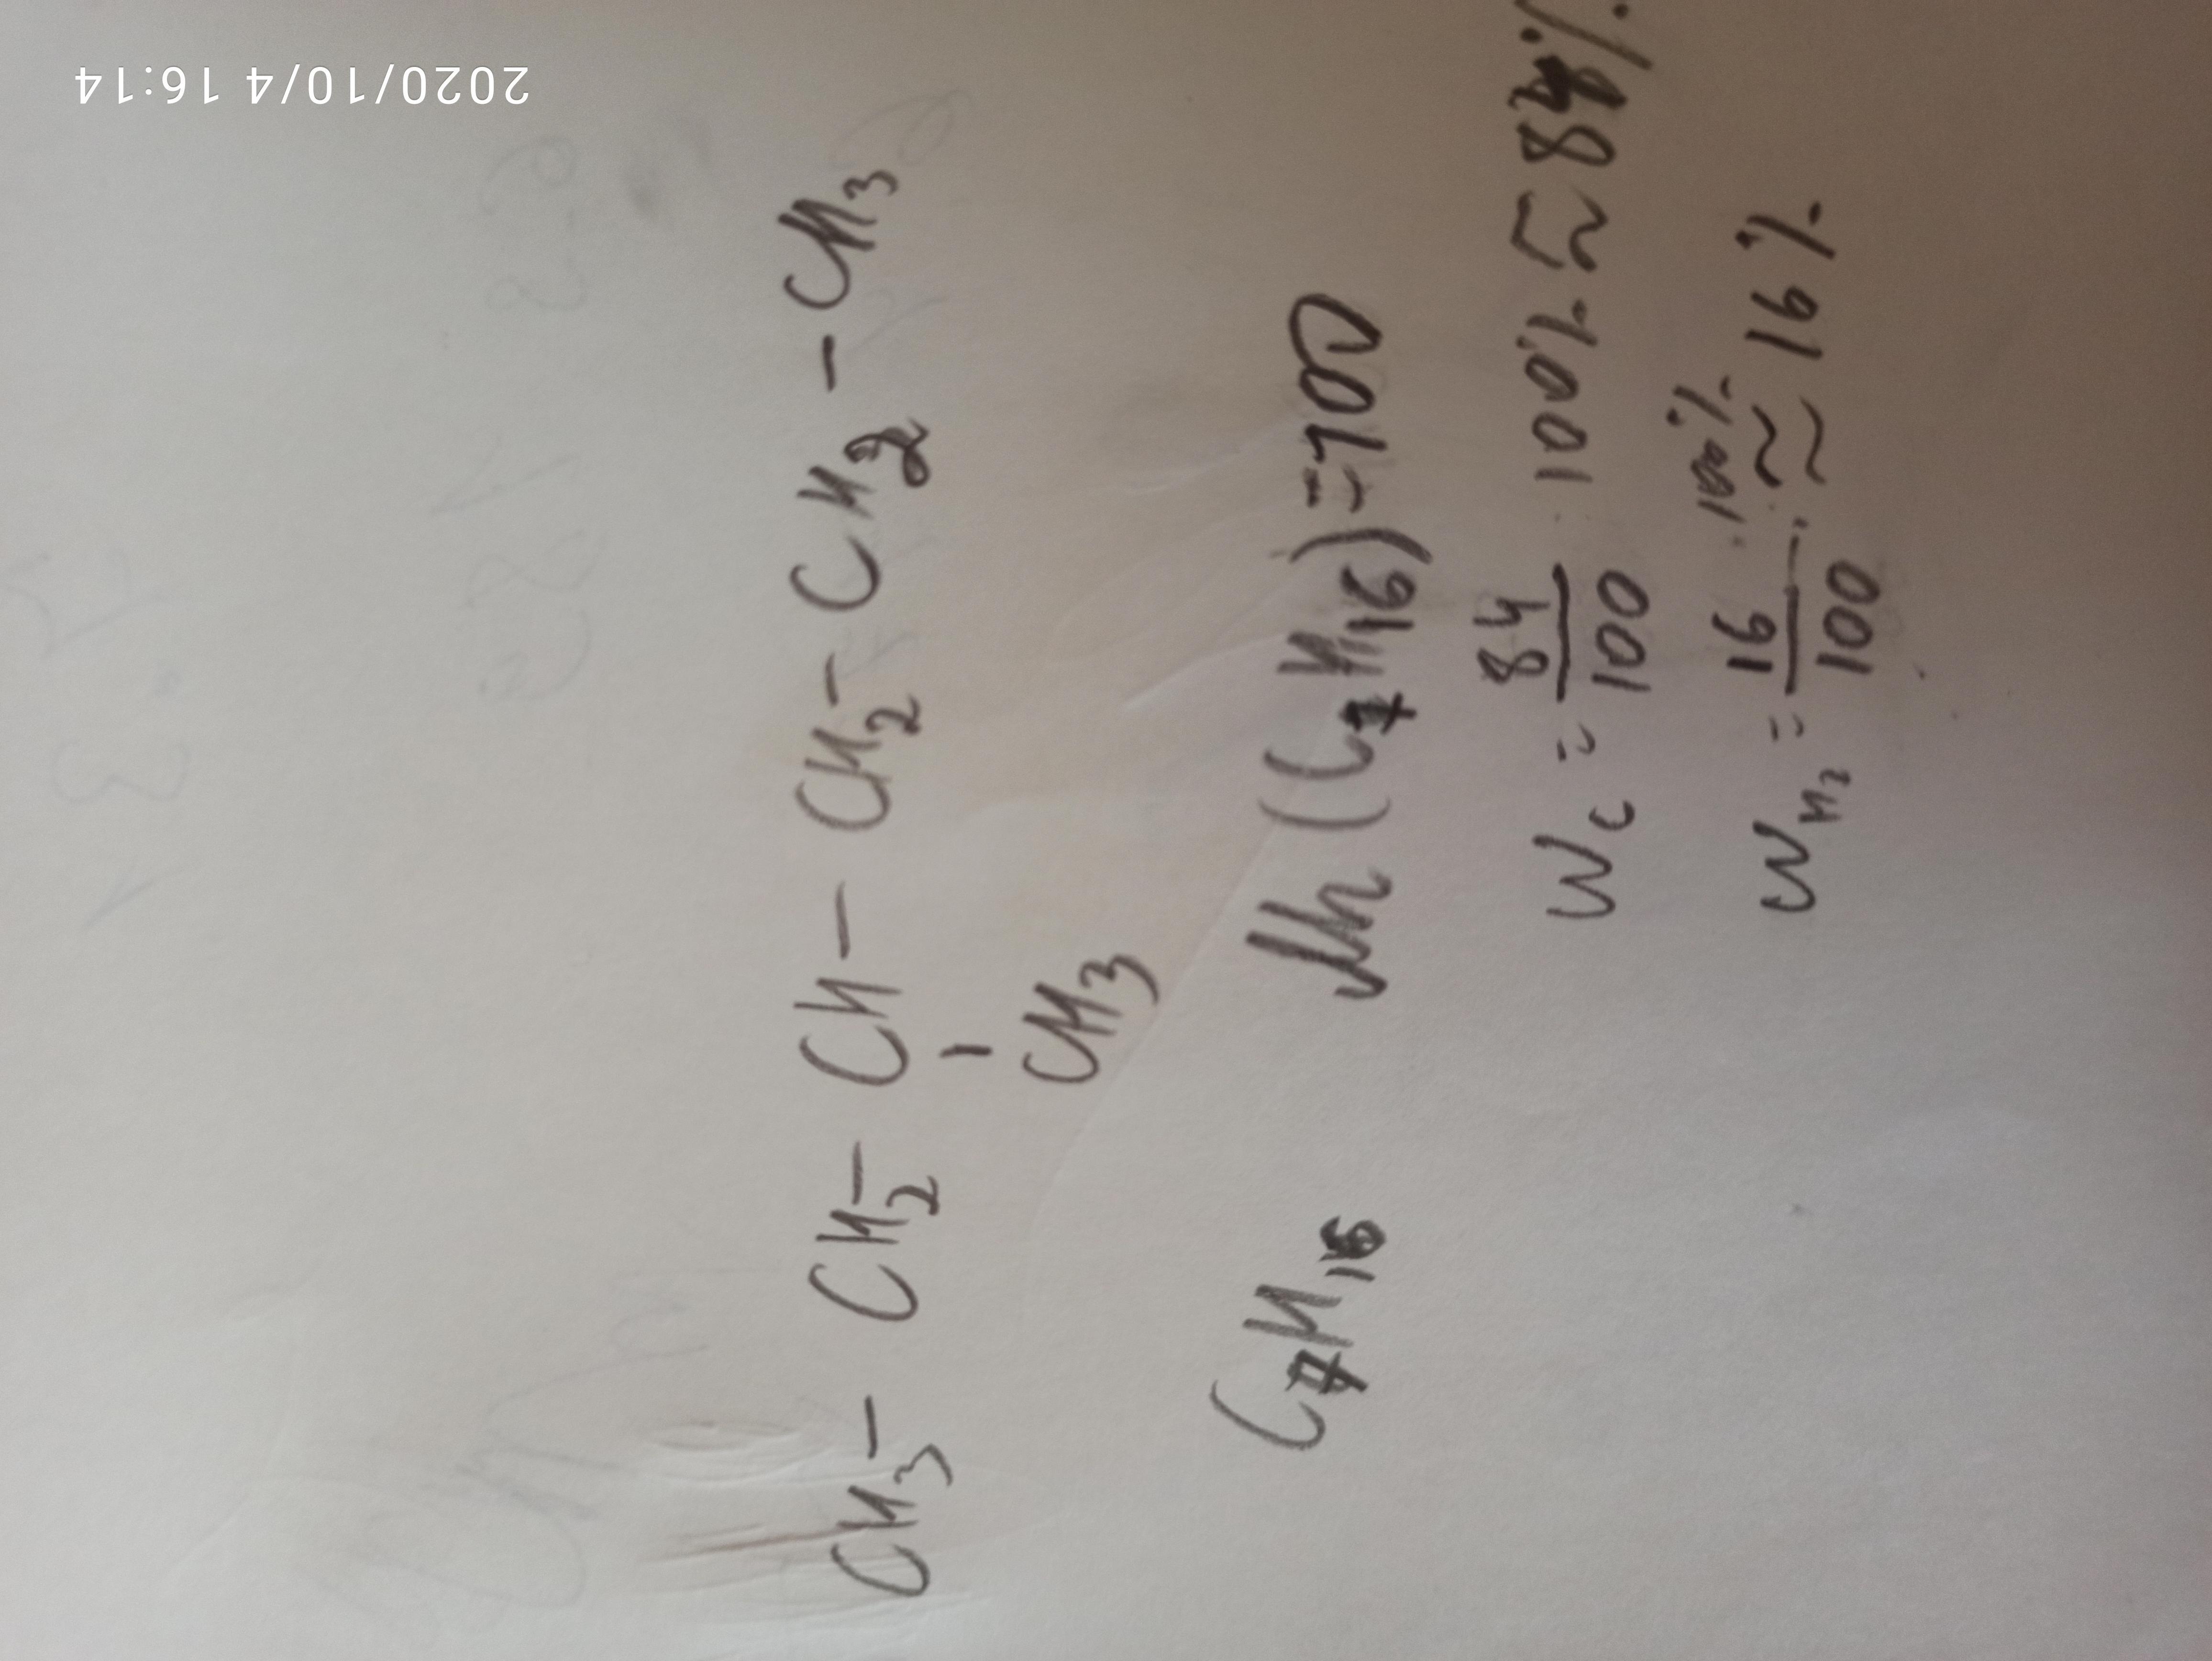 2020/10/4 16:14
CH₃ - CH₂ - CH - CH₂ - CH₂ - CH₃
|
CH₃
C₇H₁₆
Mr (C₇H₁₆) = 100
Wc = 84/100 · 100% ≈ 84%
WH₂ = 16/100 · 100% ≈ 16%